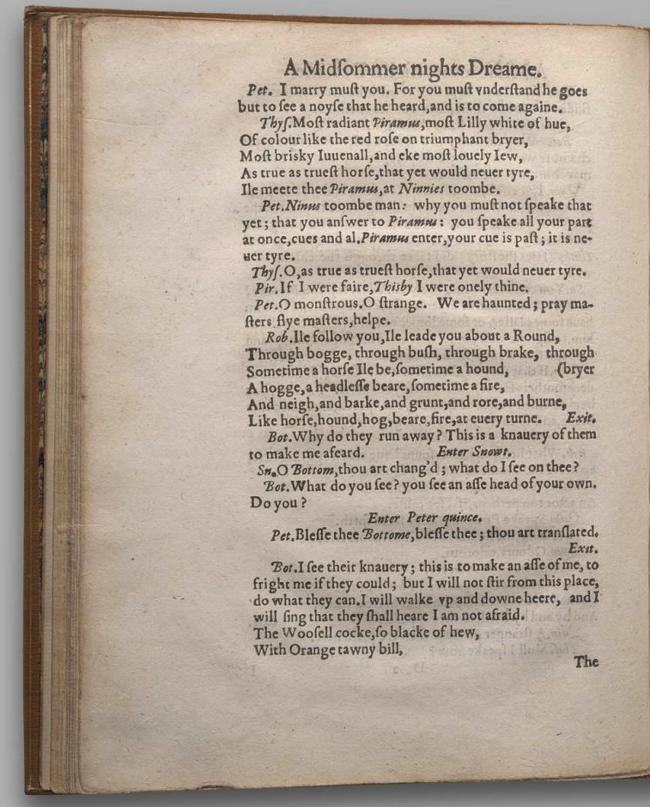 A Midſommer nights Dreame.
Pet. I marry muſt you. For you muſt vnderſtand he goes
but to ſee a noyſe that he heard,and is to come againe.
Thyſ.Moſt radiant Piramus,moſt Lilly white of hue,
Of colour like the red roſe on triumphant bryer,
Moſt brisky Iuuenall,and eke moſt louely Iew,
As true as trueſt horſe,that yet would neuer tyre,
Ile meete thee Piramus,at Ninnies toombe.
Pet.Ninus toombe man: why you muſt not ſpeake that
yet; that you anſwer to Piramus: you ſpeake all your part
at once,cues and al.Piramus enter,your cue is paſt; it is ne-
uer tyre.
Thyſ.O,as true as trueſt horſe,that yet would neuer tyre.
Pir.If I were faire,Thisby I were onely thine.
Pet.O monſtrous.O ſtrange. We are haunted; pray ma-
ſters flye maſters,helpe.
Rob.Ile follow you,Ile leade you about a Round,
Through bogge, through buſh, through brake, through
Sometime a horſe Ile be,ſometime a hound, (bryer
A hogge,a headleſſe beare,ſometime a fire,
And neigh,and barke,and grunt,and rore,and burne,
Like horſe,hound,hog,beare,fire,at euery turne. Exit.
Bot.Why do they run away? This is a knauery of them
to make me afeard. Enter Snowt.
Sn.O Bottom,thou art chang'd; what do I ſee on thee?
Bot.What do you ſee? you ſee an aſſe head of your own.
Do you?
Enter Peter quince.
Pet.Bleſſe thee Bottome,bleſſe thee; thou art tranſlated.
Exit.
Bot.I ſee their knauery; this is to make an aſſe of me, to
fright me if they could; but I will not ſtir from this place,
do what they can.I will walke vp and downe heere, and I
will ſing that they ſhall heare I am not afraid.
The Wooſell cocke,ſo blacke of hew,
With Orange tawny bill,
The